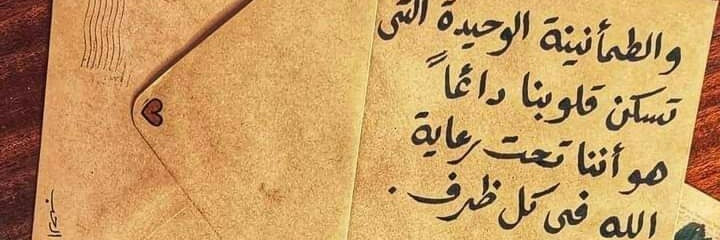 والطمأنينة الوحيدة التي
تسكن قلوبنا دائماً
هو أننا تحت رعاية
الله في كل ظرف .